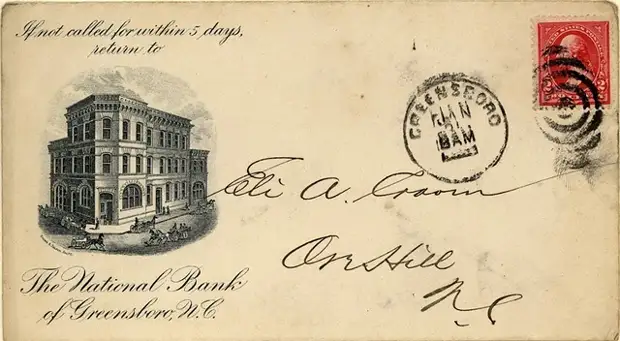 If not called for within 5 days,
return to
The National Bank
of Greensboro, N.C.
GREENSBORO
8AM
N.C.
Eli A. Croom
Ore Hill
N.C.
2
2